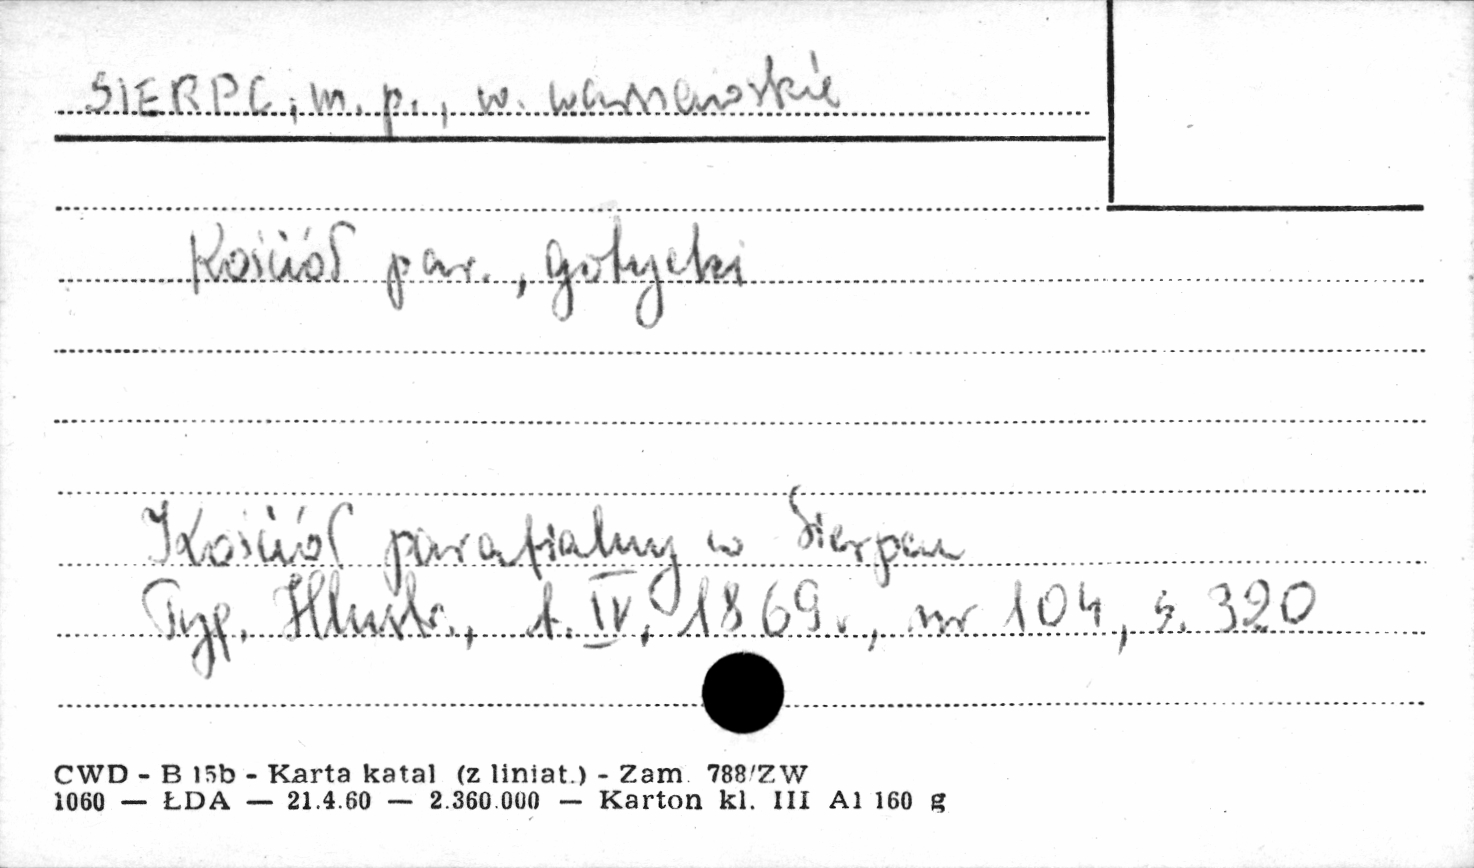 SIERPC, m. p., w. warszawskie
Kościół par., gotycki
Kościół parafialny w Sierpcu
Tyg. Illustr., t. IV, 1869 r., nr 104, s. 320
CWD - B 15b - Karta katal (z liniat.) - Zam. 788/ZW
1060 — ŁDA — 21.4.60 — 2.360.000 — Karton kl. III A1 160 g